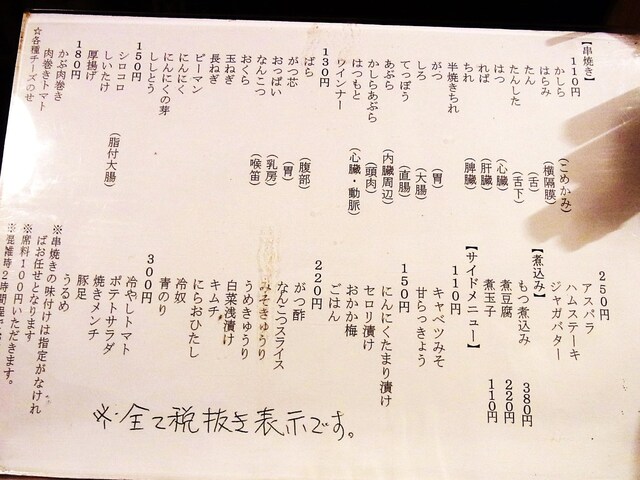 【串焼き】
110円
かしら（こめかみ）
はらみ（横隔膜）
たん（舌）
たんした（舌下）
はつ（心臓）
れば（肝臓）
ちれ（脾臓）
半焼きちれ
がつ（胃）
しろ（大腸）
てっぽう（直腸）
あぶら（内臓周辺）
かしらあぶら（頭肉）
はつもと（心臓・動脈）
ワインナー
130円
ばら（腹部）
がつ芯（胃）
おっぱい（乳房）
なんこつ（喉笛）
おくら
玉ねぎ
長ねぎ
ピーマン
にんにく
にんにくの芽
ししとう
150円
シロコロ（脂付大腸）
しいたけ
厚揚げ
180円
かぶ肉巻き
肉巻きトマト
☆各種チーズのせ
250円
アスパラ
ハムステーキ
ジャガバター
【煮込み】
もつ煮込み 380円
煮豆腐 220円
煮玉子 110円
【サイドメニュー】
110円
キャベツみそ
甘らっきょう
150円
にんにくたまり漬け
セロリ漬け
おかか梅
ごはん
220円
がつ酢
なんこつスライス
みそきゅうり
うめきゅうり
白菜浅漬け
キムチ
にらおひたし
冷奴
青のり
300円
冷やしトマト
ポテトサラダ
焼きメンチ
豚足
うるめ
※串焼きの味付けは指定がなけれ
ばお任せとなります
※席料100円いただきます。
※混雑時2時間
※全て税抜き表示です。